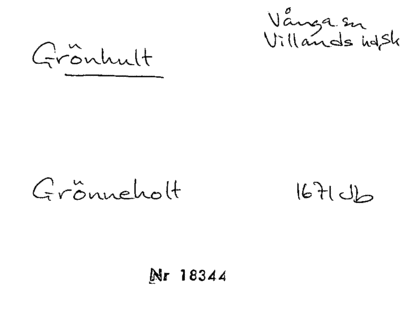 Vånga sn
Villands hd, Sk
Grönhult
Grönneholt 1671 Jb
Nr 18344